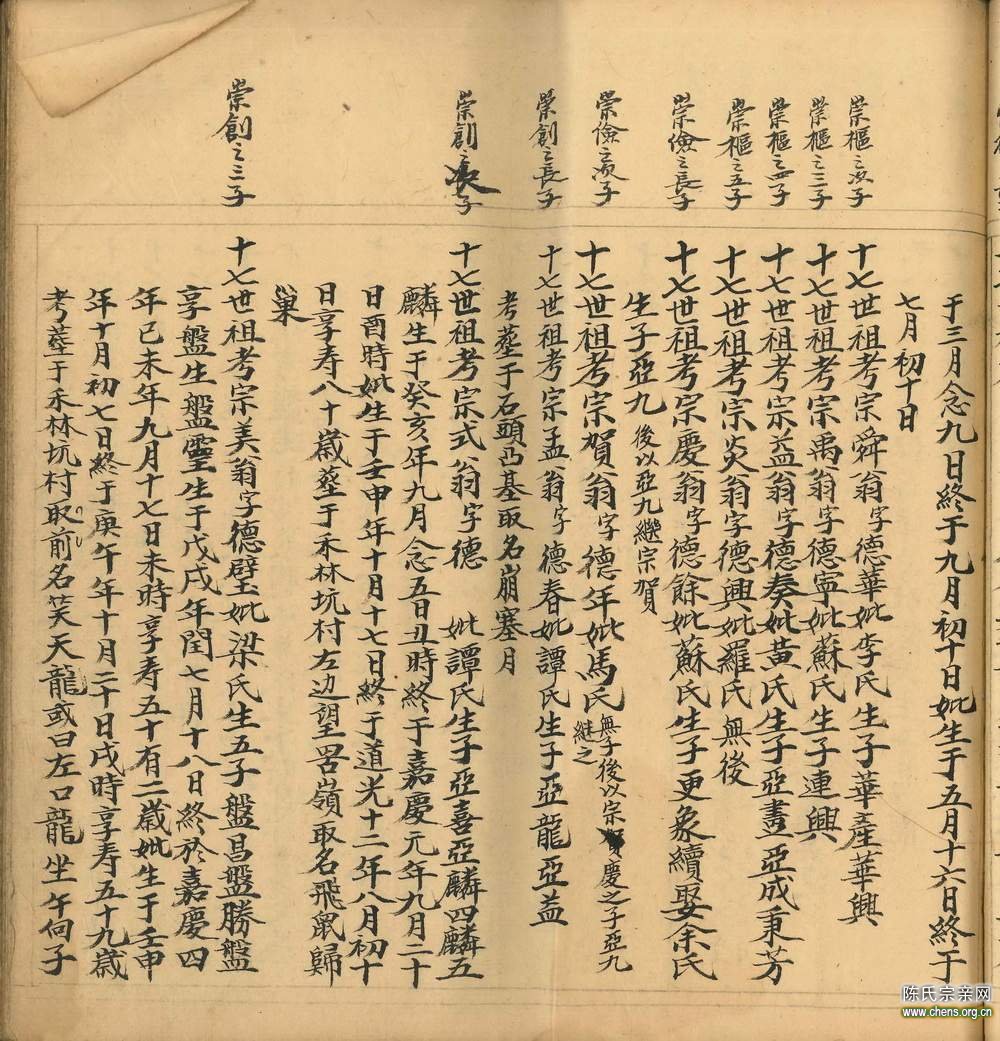 于三月念九日終于九月初十日妣生于五月十六日終于
七月初十日
崇樞之次子
十七世祖考宗舜翁字德華妣李氏生子華產華興
崇樞之三子
十七世祖考宗禹翁字德寧妣蘇氏生子連興
崇樞之四子
十七世祖考宗益翁字德奏妣黄氏生子亞晝亞成秉芳
崇樞之五子
十七世祖考宗炎翁字德興妣羅氏無後
崇儉之長子
十七世祖考宗慶翁字德餘妣蘇氏生子更象續娶余氏
生子亞九 後以亞九繼宗賀
崇儉之次子
十七世祖考宗賀翁字德年妣馬氏 無子後以宗慶之子亞九
継之
崇創之長子
十七世祖考宗孟翁字德春妣譚氏生子亞龍亞益
考塟于石頭凸基取名崩塞月
崇創之次子
十七世祖考宗式翁字德 妣譚氏生子亞喜亞麟四麟五
麟生于癸亥年九月念五日丑時終于嘉慶元年九月二十
日酉時妣生于壬申年十月十七日終于道光十二年八月初十
日享寿八十歲塟于禾林坑村左边望罟嶺取名飛鼠歸
巢
崇創之三子
十七世祖考宗美翁字德璧妣梁氏生五子盤昌盤勝盤
享盤生盤靈生于戊戌年閏七月十八日終於嘉慶四
年己未年九月十七日未時享寿五十有二歲妣生于壬申
年十月初七日終于庚午年十月二十日戌時享寿五十九歲
考塟于禾林坑村取前名芙天龍或曰左口龍坐午向子
陈氏宗亲网
www.chens.org.cn